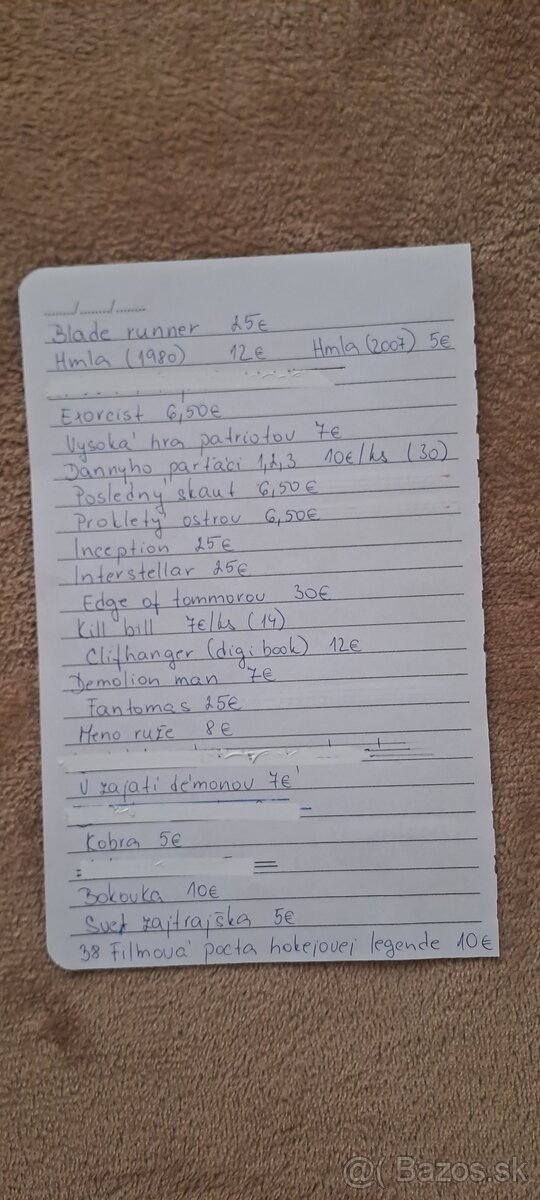 ......./......./.......
Blade runner 25€
Hmla (1980) 12€ Hmla (2007) 5€
Exorcist 6,50€
Vysoká hra patriotov 7€
Dannyho parťáci 1,2,3 10€/ks (30)
Posledný skaut 6,50€
Prokletý ostrov 6,50€
Inception 25€
Interstellar 25€
Edge of tommorou 30€
Kill bill 7€/ks (14)
Clifhanger (digibook) 12€
Demolion man 7€
Fantomas 25€
Meno ruže 8€
V zajatí démonov 7€
Kobra 5€
Bokovka 10€
Svet zajtrajška 5€
38 Filmová pocta hokejovej legende 10€
@( Bazos.sk